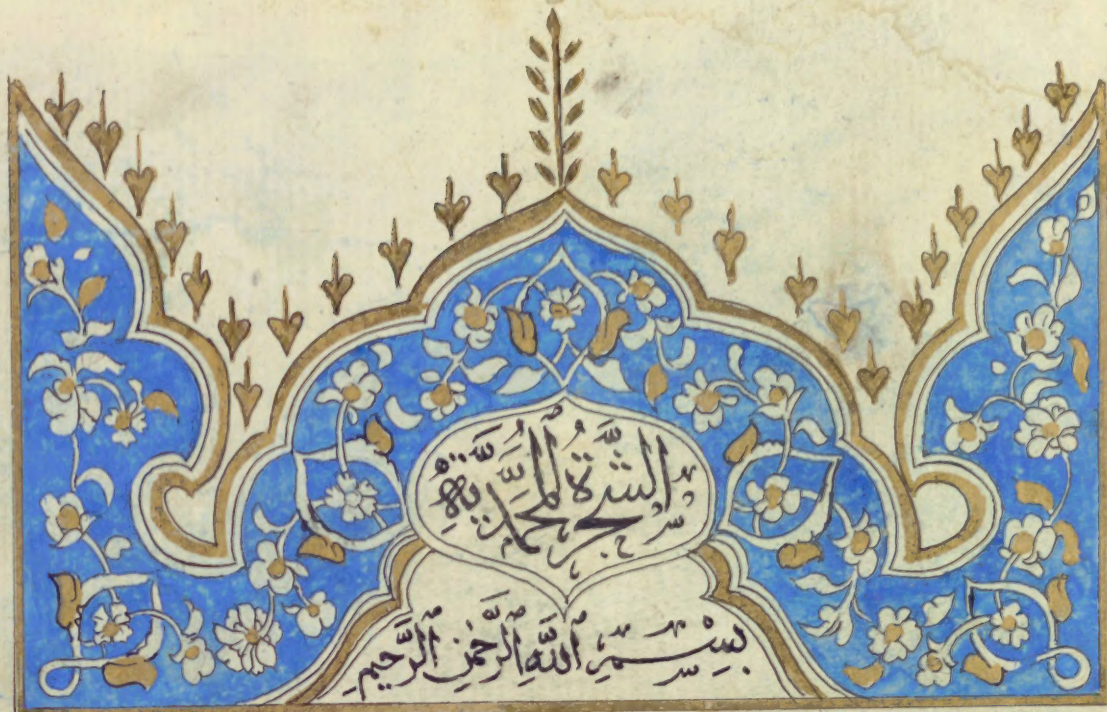 الشَّجَرَةُ الْمُحَمَّدِيَّةُ
بِسْمِ ٱللَّهِ ٱلرَّحْمٰنِ ٱلرَّحِيمِ